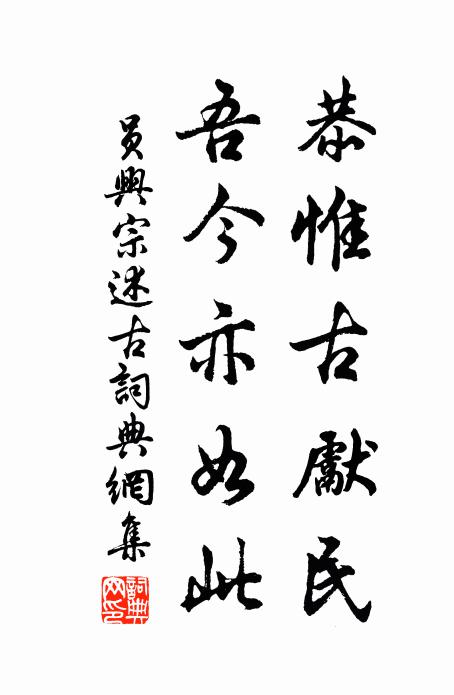 恭惟古獻民
吾今亦如此
員興宗述古詞典網集
詞典網印